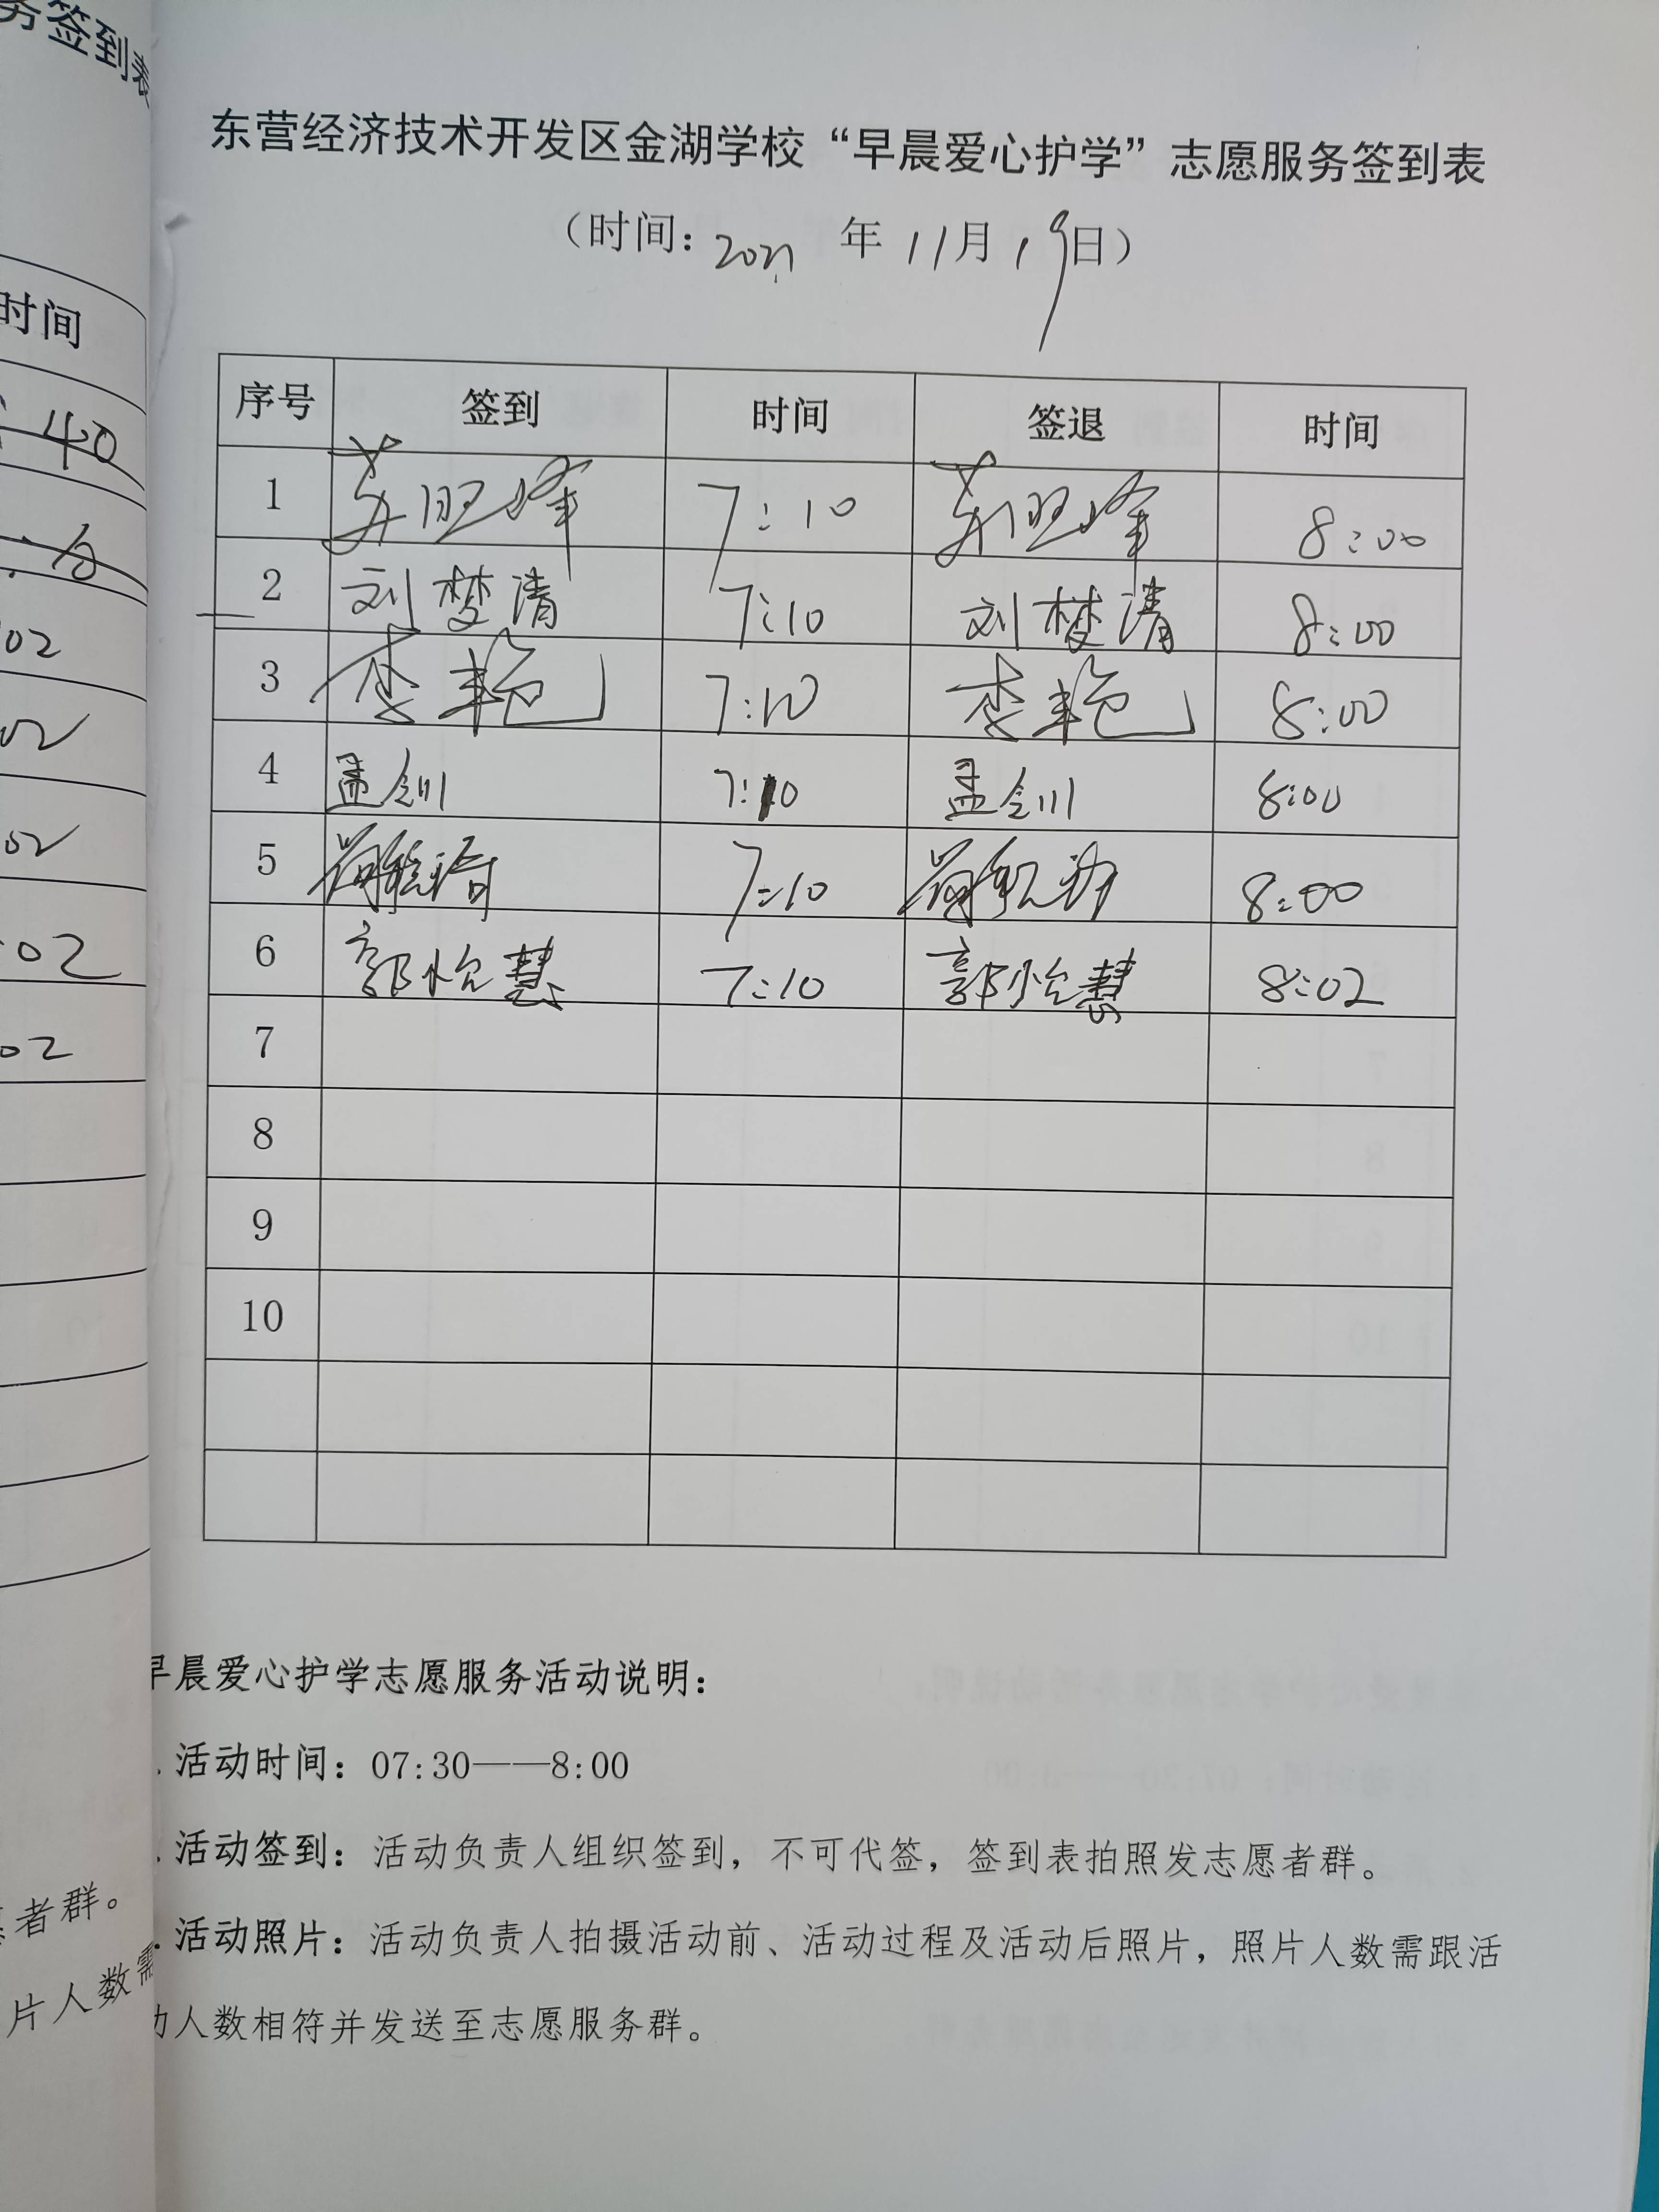 务签到表
时间
: 40
02
02
02
02
02
者群。
片人数需
东营经济技术开发区金湖学校“早晨爱心护学”志愿服务签到表
（时间：2021 年 11月 19日）
序号 签到 时间 签退 时间
1 7:10 8:00
2 刘梦清 7:10 刘梦清 8:00
3 李艳 7:10 李艳 8:00
4 孟剑 7:10 孟剑 8:00
5 7:10 8:00
6 郭怡慧 7:10 郭怡慧 8:02
7
8
9
10
早晨爱心护学志愿服务活动说明：
. 活动时间：07:30——8:00
. 活动签到：活动负责人组织签到，不可代签，签到表拍照发志愿者群。
. 活动照片：活动负责人拍摄活动前、活动过程及活动后照片，照片人数需跟活
动人数相符并发送至志愿服务群。